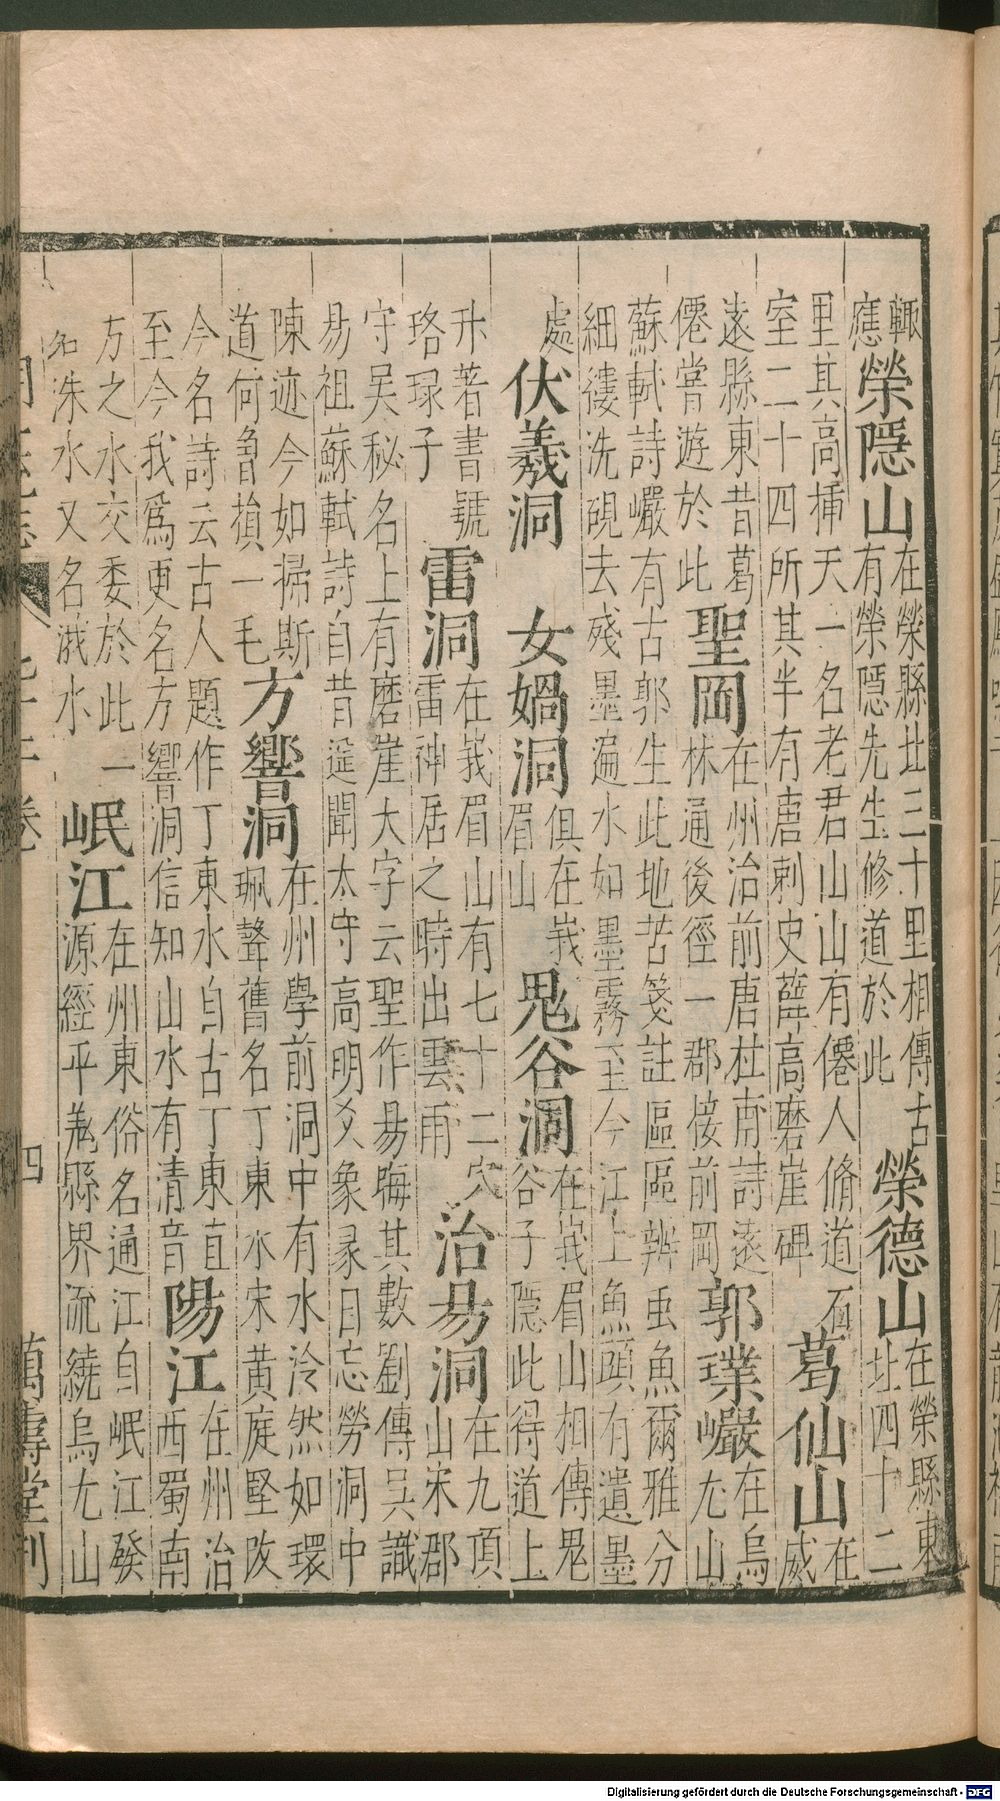 輙
應
榮隱山
在榮縣北三十里相傳古
有榮隱先生修道於此
榮德山
在榮縣東
北四十二
里其高揷天一名老君山山有僊人脩道石
室二十四所其半有唐刺史薛高磨崖碑
葛仙山
在
威
遠縣東昔葛
僊嘗遊於此
聖岡
在州治前唐杜甫詩遠
林通後徑一郡接前岡
郭璞巖
在烏
尤山
蘇軾詩巖有古郭生此地苦箋註區區辨虫魚爾雅分
細縷洗硯去殘墨遍水如墨霧至今江上魚頭有遺墨
處
伏羲洞
女媧洞
俱在峩
眉山
鬼谷洞
在峩眉山相傳鬼
谷子隱此得道上
升著書號
珞琭子
雷洞
在峩眉山有七十二穴
雷神居之時出雲雨
治易洞
在九頂
山宋郡
守吳秘名上有磨崖大字云聖作易晦其數劉傳吳識
易祖蘇軾詩自昔遥聞太守高明爻象彔日忘勞洞中
陳迹今如掃斯
道何曾損一毛
方響洞
在州學前洞中有水泠然如環
珮聲舊名丁東水宋黃庭堅改
今名詩云古人題作丁東水自古丁東直
至今我爲更名方響洞信知山水有清音
陽江
在州治
西蜀南
方之水交委於此一
名沬水又名涐水
岷江
在州東俗名通江自岷江發
源經平羌縣界流繞烏尤山
四
萬壽堂刊
Digitalisierung gefördert durch die Deutsche Forschungsgemeinschaft - DFG